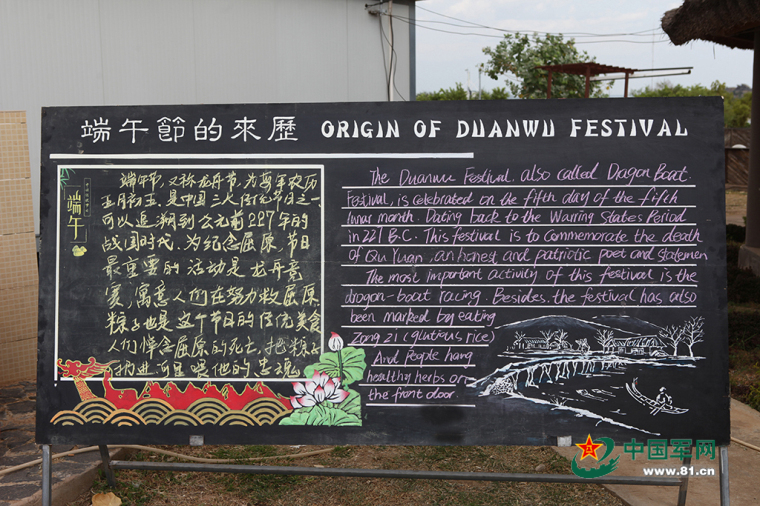 端午節的來歷 ORIGIN OF DUANWU FESTIVAL
端午
端午节，又称龙舟节，为每年农历
五月初五，是中国三大传统节日之一
可以追溯到公元前227年的
战国时代。为纪念屈原，节日
最重要的活动是龙舟竞
赛，寓意人们在努力救屈原
粽子也是这个节日的传统美食
人们悼念屈原的死亡，把粽子
扔进河里喂他的
The Duanwu Festival, also called Dragon Boat
Festival, is celebrated on the fifth day of the fifth
lunar month. Dating back to the Warring States Period
in 227 B.C. This festival is to commemorate the death
of Qu Yuan, an honest and patriotic poet and statemen
The most important activity of this festival is the
dragon-boat racing. Besides, the festival has also
been marked by eating
Zong zi (glutious rice)
And people hang
healthy herbs on
the front door.
中国军网
www.81.cn